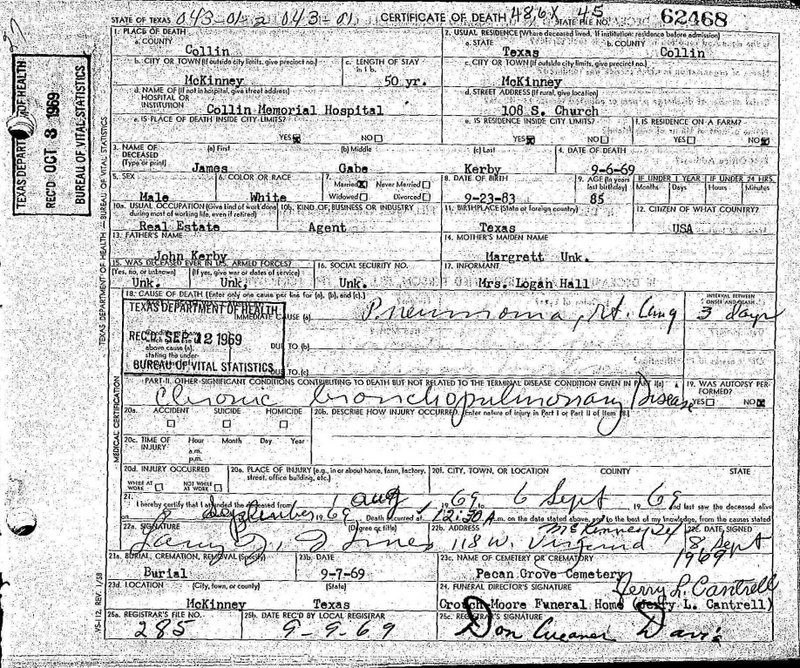 043-01-2 043-01 486X 45
STATE OF TEXAS CERTIFICATE OF DEATH STATE FILE NO. 62468
1. PLACE OF DEATH 2. USUAL RESIDENCE (Where deceased lived. If institution: residence before admission)
a. COUNTY a. STATE b. COUNTY
Collin Texas Collin
b. CITY OR TOWN (If outside city limits, give precinct no.) c. LENGTH OF STAY in 1 b. c. CITY OR TOWN (If outside city limits, give precinct no.)
McKinney 50 yr. McKinney
d. NAME OF (If not in hospital, give street address) HOSPITAL OR INSTITUTION d. STREET ADDRESS (If rural, give location)
Collin Memorial Hospital 108 S. Church
e. IS PLACE OF DEATH INSIDE CITY LIMITS? e. IS RESIDENCE INSIDE CITY LIMITS? f. IS RESIDENCE ON A FARM?
YES NO YES NO YES NO
3. NAME OF DECEASED (Type or print) (a) First (b) Middle (c) Last 4. DATE OF DEATH
James Gabe Kerby 9-6-69
5. SEX 6. COLOR OR RACE 7. Married Never Married Widowed Divorced 8. DATE OF BIRTH 9. AGE (In years last birthday) IF UNDER 1 YEAR IF UNDER 24 HRS.
Months Days Hours Minutes
Male White 9-23-83 85
10a. USUAL OCCUPATION (Give kind of work done during most of working life, even if retired) 10b. KIND OF BUSINESS OR INDUSTRY 11. BIRTHPLACE (State or foreign country) 12. CITIZEN OF WHAT COUNTRY?
Real Estate Agent Texas USA
13. FATHER'S NAME 14. MOTHER'S MAIDEN NAME
John Kerby Margrett Unk.
15. WAS DECEASED EVER IN U.S. ARMED FORCES? 16. SOCIAL SECURITY NO. 17. INFORMANT
(Yes, no, or unknown) (If yes, give war or dates of service)
Unk. Unk. Unk. Mrs. Logan Hall
18. CAUSE OF DEATH (Enter only one cause per line for (a), (b), and (c).) INTERVAL BETWEEN ONSET AND DEATH
IMMEDIATE CAUSE (a) Pneumonia, rt. lung 3 days
DUE TO (b)
DUE TO (c)
TEXAS DEPARTMENT OF HEALTH
REC'D SEP 12 1969
BUREAU OF VITAL STATISTICS
PART II. OTHER SIGNIFICANT CONDITIONS CONTRIBUTING TO DEATH BUT NOT RELATED TO THE TERMINAL DISEASE CONDITION GIVEN IN PART I (a) 19. WAS AUTOPSY PERFORMED?
Chronic bronchopulmonary Disease YES NO
20a. ACCIDENT SUICIDE HOMICIDE 20b. DESCRIBE HOW INJURY OCCURRED. (Enter nature of injury in Part I or Part II of item 18.)
20c. TIME OF INJURY Hour Month Day Year
a.m.
p.m.
20d. INJURY OCCURRED 20e. PLACE OF INJURY (e.g., in or about home, farm, factory, street, office building, etc.) 20f. CITY, TOWN, OR LOCATION COUNTY STATE
WHILE AT WORK NOT WHILE AT WORK
21. I hereby certify that I attended the deceased from 1 Aug 1969 6 Sept 1969 and last saw the deceased alive
September 1969 Death occurred at 12:30 A.m. on the date stated above, and to the best of my knowledge, from the causes stated
22a. SIGNATURE (Degree or title) 22b. ADDRESS 22c. DATE SIGNED
118 W. Virginia 8 Sept 1969
23a. BURIAL, CREMATION, REMOVAL (Specify) 23b. DATE 23c. NAME OF CEMETERY OR CREMATORY
Burial 9-7-69 Pecan Grove Cemetery
23d. LOCATION (City, town, or county) (State) 24. FUNERAL DIRECTOR'S SIGNATURE Jerry L. Cantrell
McKinney Texas Crouch-Moore Funeral Home (Jerry L. Cantrell)
25a. REGISTRAR'S FILE NO. 25b. DATE REC'D BY LOCAL REGISTRAR 25c. REGISTRAR'S SIGNATURE
285 9-9-69 Don Davis
TEXAS DEPARTMENT OF HEALTH
REC'D OCT 3 1969
BUREAU OF VITAL STATISTICS
TEXAS DEPARTMENT OF HEALTH — BUREAU OF VITAL STATISTICS
MEDICAL CERTIFICATION
VS-112 REV. 1/58